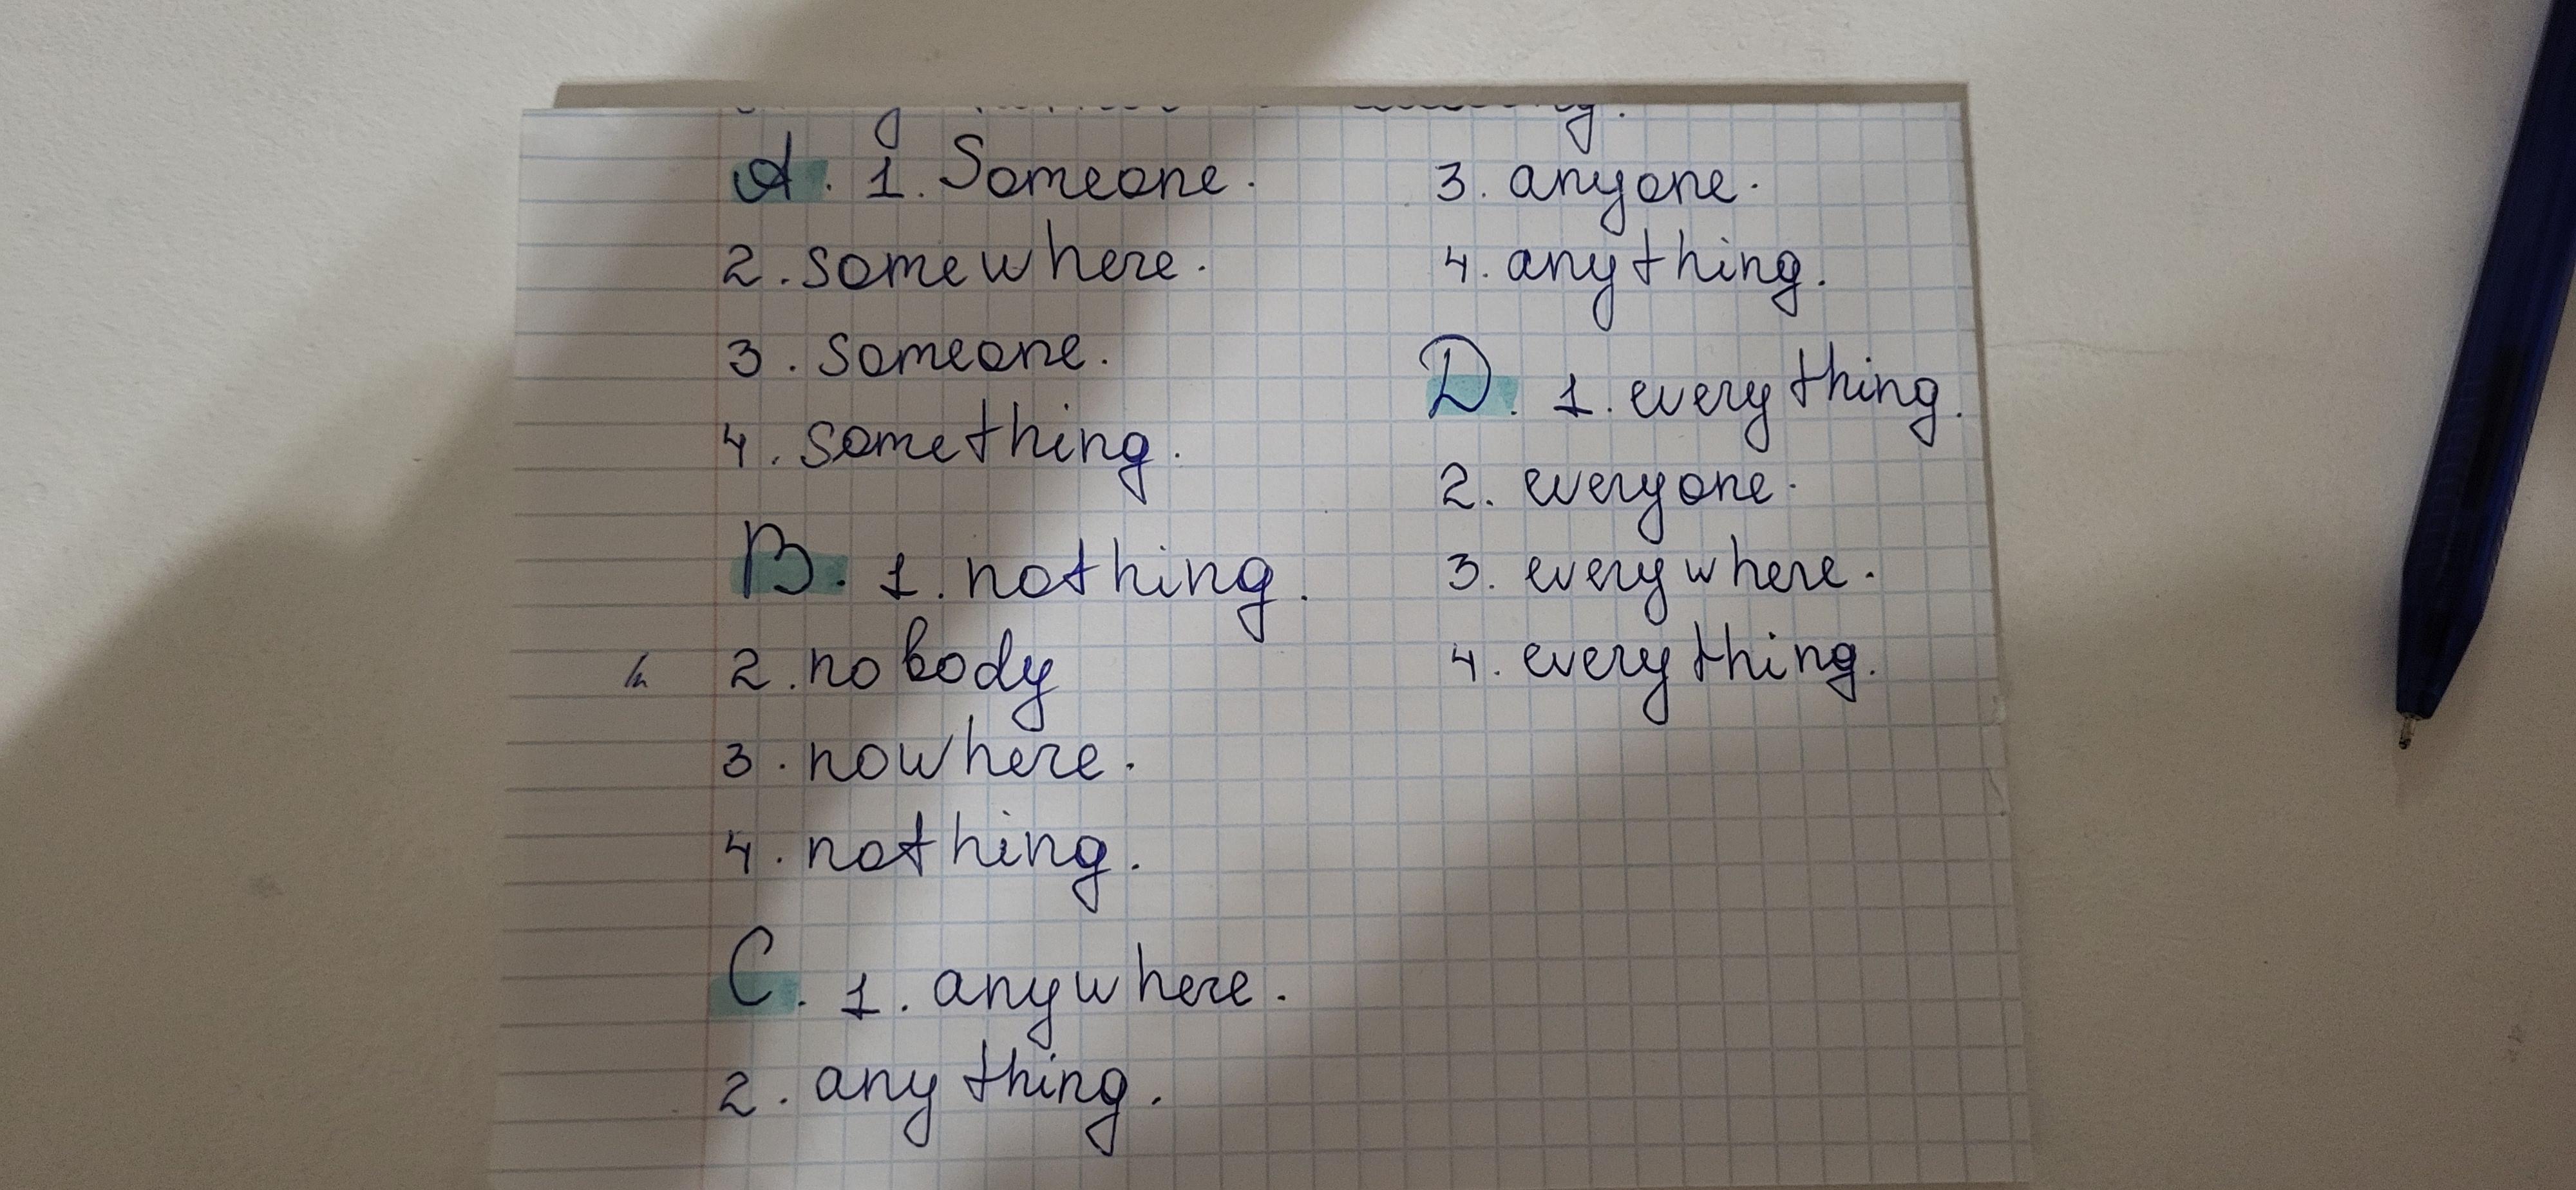 A. 1. Someone.
2. somewhere.
3. someone.
4. something.
B. 1. nothing.
2. nobody
3. nowhere.
4. nothing.
C. 1. anywhere.
2. anything.
3. anyone.
4. anything.
D. 1. everything.
2. everyone.
3. everywhere.
4. everything.